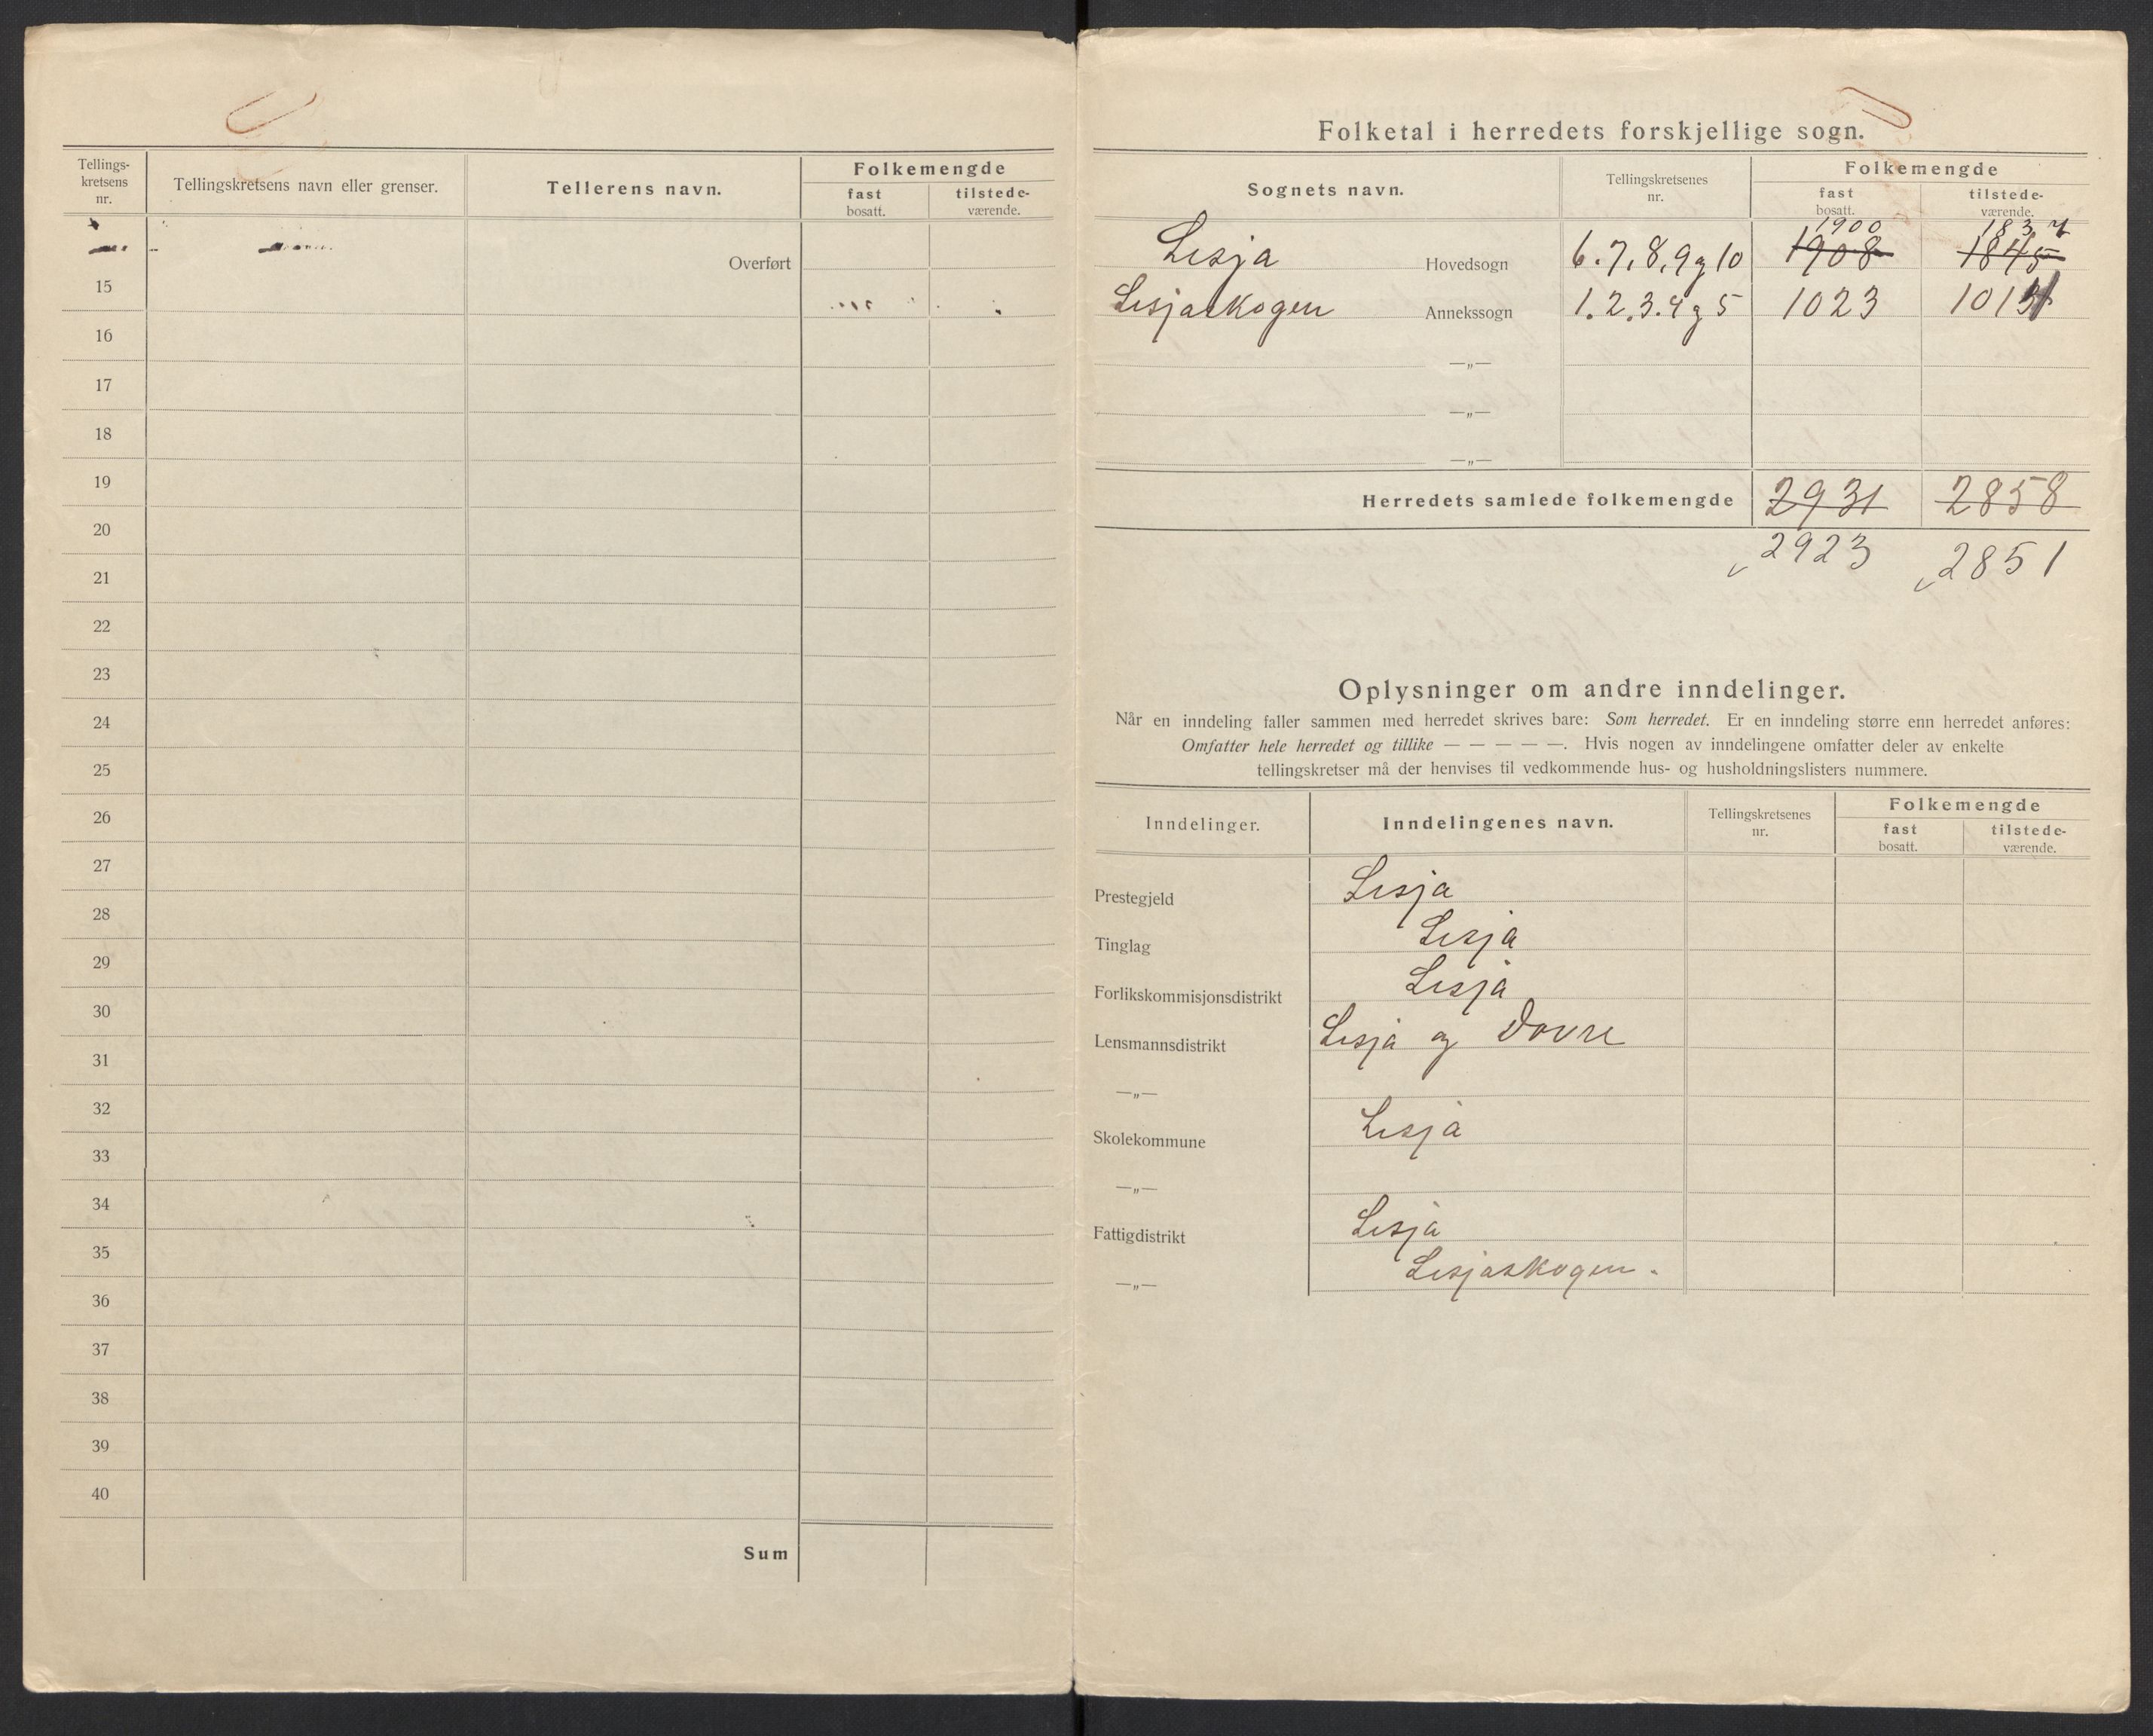 Tellings-
kretsens
nr.
Tellingskretsens navn eller grenser.
Tellerens navn.
Folkemengde
fast
bosatt.
tilstede-
værende.
Overført
15
16
17
18
19
20
21
22
23
24
25
26
27
28
29
30
31
32
33
34
35
36
37
38
39
40
Sum
Folketal i herredets forskjellige sogn.
Sognets navn.
Tellingskretsenes
nr.
Folkemengde
fast
bosatt.
tilstede-
værende.
1900 1837
Lesja Hovedsogn 6.7,8,9 og 10 1908 1845
Lesjaskogen Annekssogn 1.2.3.4 og 5 1023
—„—
—„—
—„—
Herredets samlede folkemengde 2931 2858
2923 2851
Oplysninger om andre inndelinger.
Når en inndeling faller sammen med herredet skrives bare: Som herredet. Er en inndeling større enn herredet anføres:
Omfatter hele herredet og tillike — — — — —. Hvis nogen av inndelingene omfatter deler av enkelte
tellingskretser må der henvises til vedkommende hus- og husholdningslisters nummere.
Inndelinger.
Inndelingenes navn.
Tellingskretsenes
nr.
Folkemengde
fast
bosatt.
tilstede-
værende.
Prestegjeld Lesja
Tinglag Lesja
Forlikskommisjonsdistrikt Lesja
Lensmannsdistrikt Lesja og Dovre
—„—
Skolekommune Lesja
—„—
Fattigdistrikt Lesja
—„— Lesjaskogen.